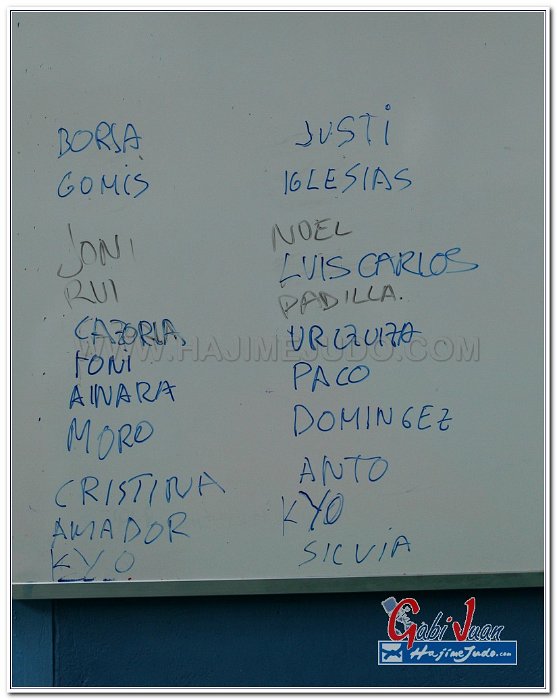 BORJA
GOMIS
JONI
RUI
CAZORLA,
TONI
AINARA
MORO
CRISTINA
AMADOR
KYO
JUSTI
IGLESIAS
NOEL
LUIS CARLOS
PADILLA.
URIZUIZA
PACO
DOMINGEZ
ANTO
KYO
SILVIA
WWW.HAJIMEJUDO.COM
Gabi Juan
HajimeJudo.com